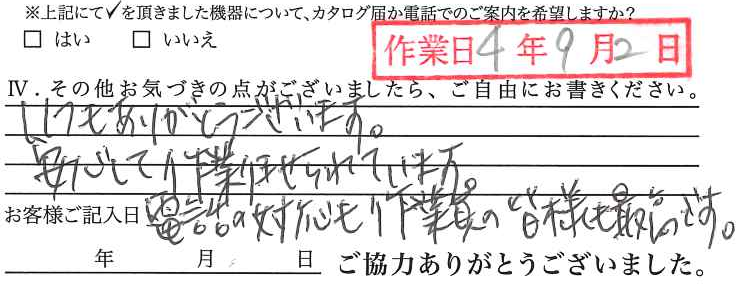 ※上記にて✓を頂きました機器について、カタログ届か電話でのご案内を希望しますか?
□ はい □ いいえ
作業日 4年9月2日
Ⅳ. その他お気づきの点がございましたら、ご自由にお書きください。
いつもありがとうございます。
安心して作業任せられています。
電話の対応も作業員の皆様も最高です。
お客様ご記入日
年 月 日 ご協力ありがとうございました。